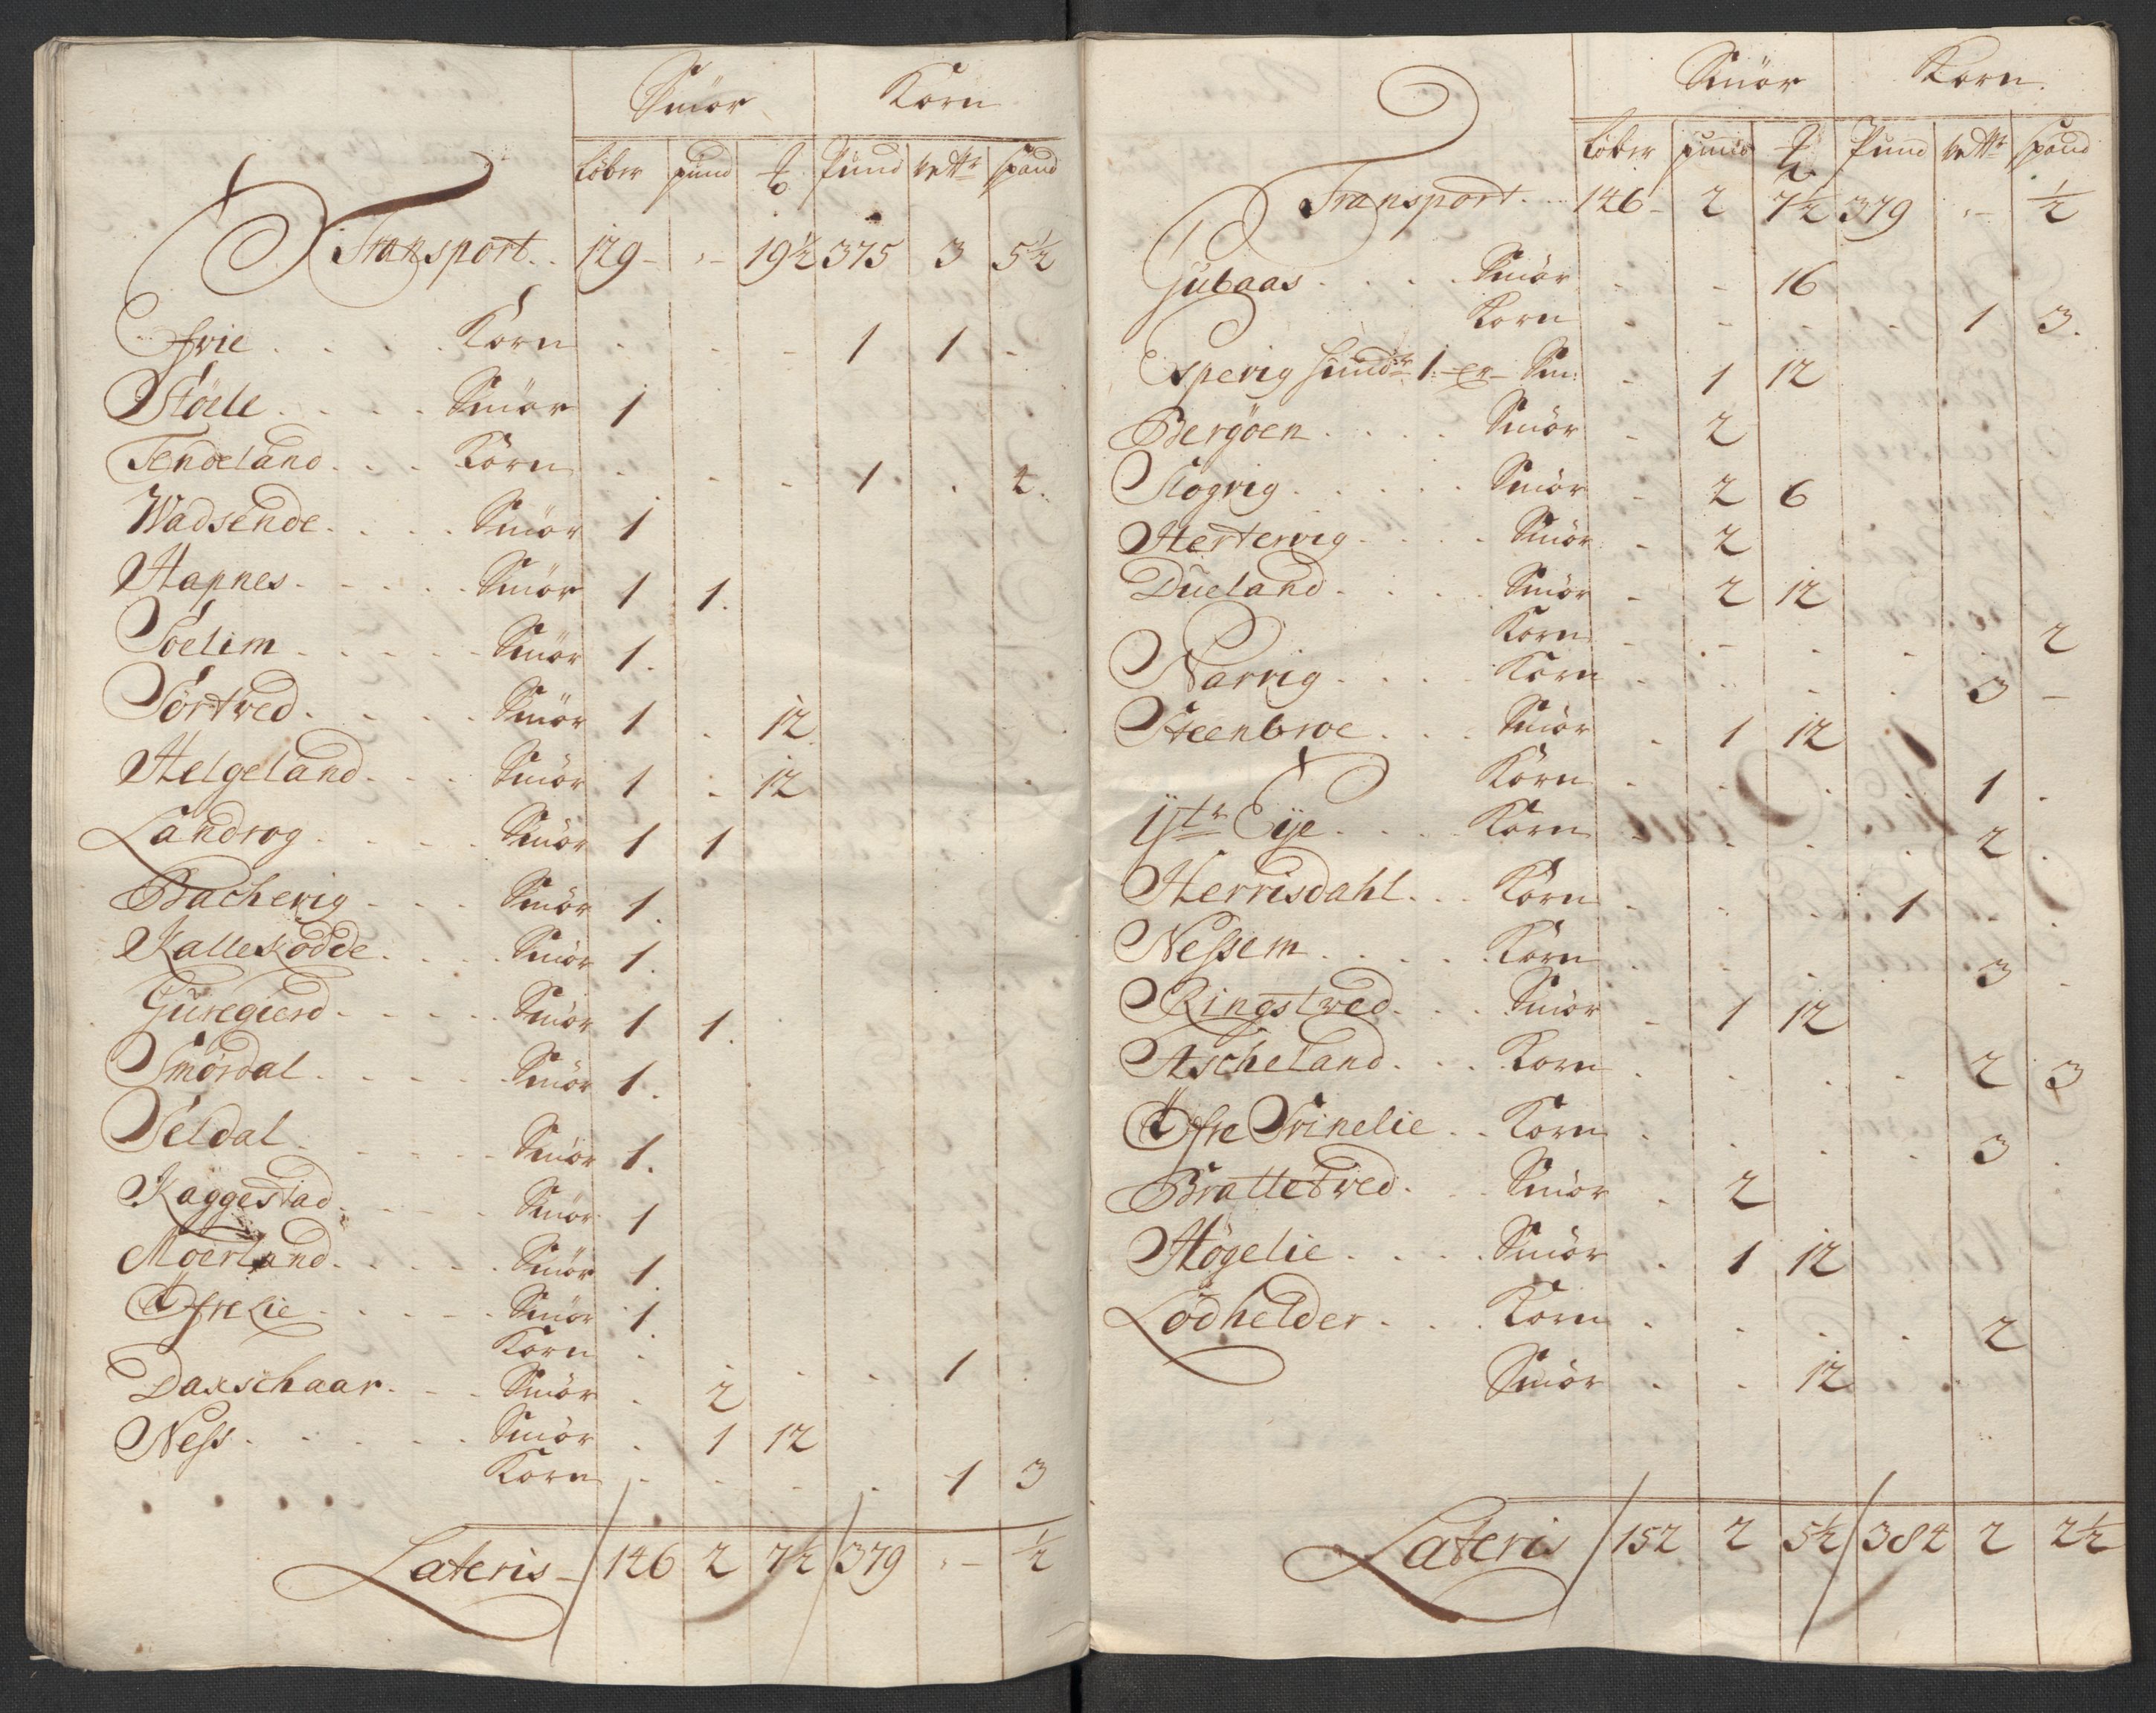 Smör Korn
Löber pund ℔ Pund vettr spand
Transport .. 129 - - 19½ 375 3 5½
Efrie . . . . Korn . . - 1 1 -
Stöele . . . . Smör 1
Tendeland . . . Korn . . - 1 . 4.
Wadsende . . . . Smör 1
Hapnes . . . . Smör 1 1.
Soelim . . . . . Smör 1.
Sörtved . . . . Smör 1 . 12
Helgeland . . . Smör 1 - 12
Landrog . . . . Smör 1 1
Bachevig . . . Smör 1.
Kalleskodde . . . . Smör 1.
Guregierd . . . . . Smör 1 1.
Smördal . . . . . Smör 1.
Seldal . . . . . Smör 1.
Kaggestad . . . . Smör 1
Moerland . . . . . Smör 1.
Öfre Lie . . . . . Smör 1.
Korn . . . . 1 .
Daxschaar . . . Smör . 2
Ness . . . . . Smör . 1 12
Korn . . . . 1 3
Lateris - 146 2 7½ 379 - ½
Smör Korn.
Löber pund ℔ Pund vettr spand
Transport . . 146 - 2 7½ 379 - ½
Gubaas . . . . Smör . - 16
Korn . - . . 1 3.
Espevig hundr 1. er Sm: - 1 12
Bergöen . . . . Smör - 2
Slogvig . . . . . Smör - 2 6
Hertervig . . . . Smör - 2
Dueland . . . . Smör - 2 12
Korn . - . . . 2
Narvig . . . . Korn . . . . 3 -
Steenbroe . . . Smör . 1 12
Korn . . . . 1 .
Ÿtr Eÿe . . . . Korn . . . . 2 .
Herrisdahl . . . Korn . . . 1 . .
Nessem . . . . . Korn . . . . 3 .
Ringstved . . . Smör - 1 12
Ascheland . . . Korn . . . . 2 3
Öfre Trinelie . . Korn . . . . 3 .
Brattetved . . . Smör . 2
Högelie . . . . Smör . 1 12
Lodhelder . . . Korn . . . . 2
Smör . . 12
Lateris 152 2 5½ 384 2 2½